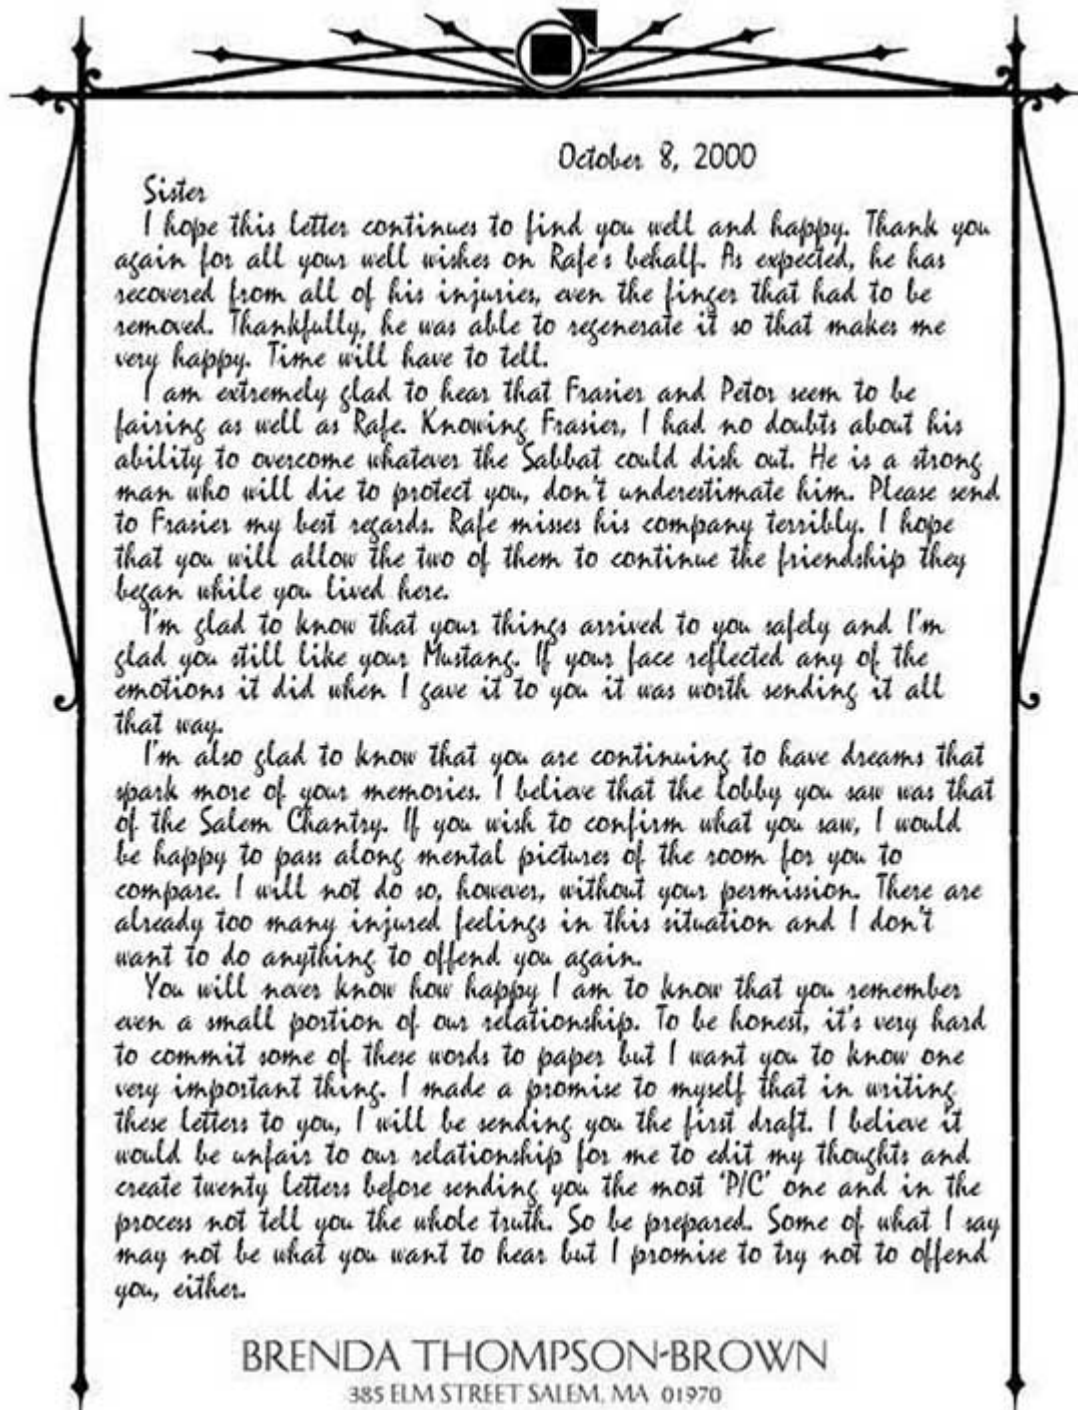 October 8, 2000
Sister
I hope this letter continues to find you well and happy. Thank you
again for all your well wishes on Rafe's behalf. As expected, he has
recovered from all of his injuries, even the finger that had to be
removed. Thankfully, he was able to regenerate it so that makes me
very happy. Time will have to tell.
I am extremely glad to hear that Frasier and Petor seem to be
fairing as well as Rafe. Knowing Frasier, I had no doubts about his
ability to overcome whatever the Sabbat could dish out. He is a strong
man who will die to protect you, don't underestimate him. Please send
to Frasier my best regards. Rafe misses his company terribly. I hope
that you will allow the two of them to continue the friendship they
began while you lived here.
I'm glad to know that your things arrived to you safely and I'm
glad you still like your Mustang. If your face reflected any of the
emotions it did when I gave it to you it was worth sending it all
that way.
I'm also glad to know that you are continuing to have dreams that
spark more of your memories. I believe that the lobby you saw was that
of the Salem Chantry. If you wish to confirm what you saw, I would
be happy to pass along mental pictures of the room for you to
compare. I will not do so, however, without your permission. There are
already too many injured feelings in this situation and I don't
want to do anything to offend you again.
You will never know how happy I am to know that you remember
even a small portion of our relationship. To be honest, it's very hard
to commit some of these words to paper but I want you to know one
very important thing. I made a promise to myself that in writing
these letters to you, I will be sending you the first draft. I believe it
would be unfair to our relationship for me to edit my thoughts and
create twenty letters before sending you the most 'P/C' one and in the
process not tell you the whole truth. So be prepared. Some of what I say
may not be what you want to hear but I promise to try not to offend
you, either.
BRENDA THOMPSON-BROWN
385 ELM STREET SALEM, MA 01970